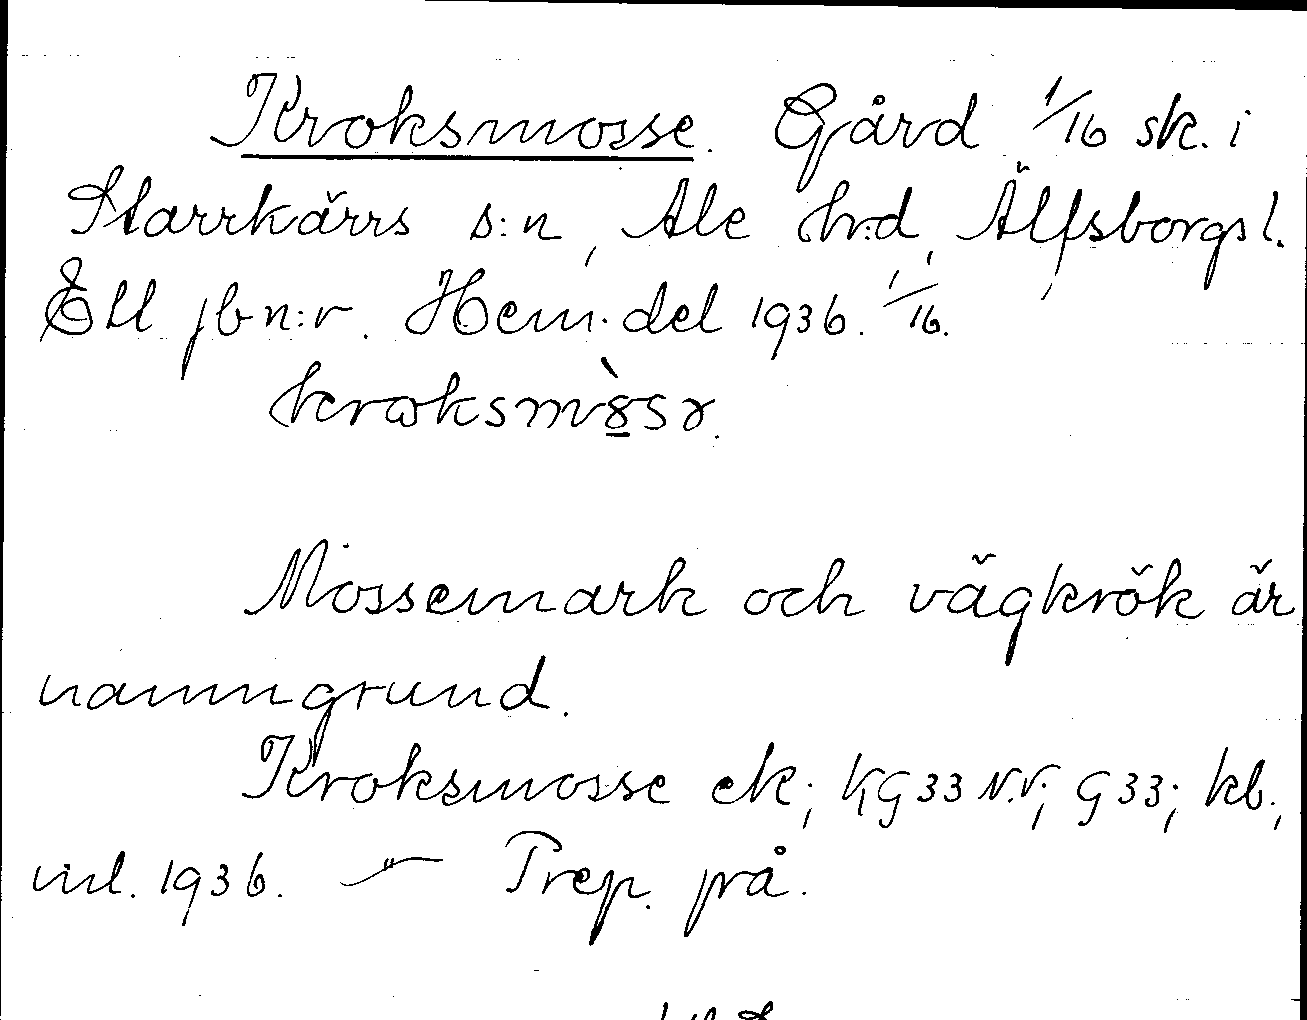 Kroksmosse. Gård 1/16 sk. i
Starrkärrs s:n, Ale h:d, Älfsborgs l.
Ett jbn:r. Hem.del 1936. 1/16.
Mossemark och vägkrök är
namngrund.
Kroksmosse ek; KG33 N.V; G33; kb.,
vid. 1936. — Prep. på.